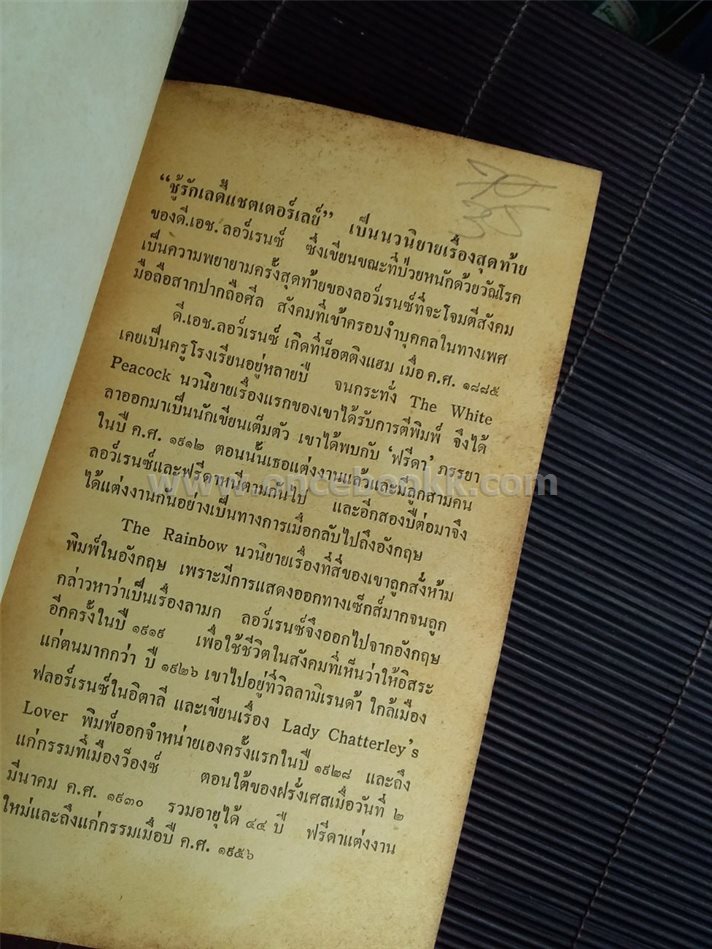 “ชู้รักเลดี้แชตเตอร์เลย์” เป็นนวนิยายเรื่องสุดท้าย
ของดี.เอช. ลอว์เรนซ์ ซึ่งเขียนขณะที่ป่วยหนักด้วยวัณโรค
เป็นความพยายามครั้งสุดท้ายของลอว์เรนซ์ที่จะโจมตีสังคม
มือถือสากปากถือศีล สังคมที่เข้าครอบงำบุคคลในทางเพศ
ดี.เอช.ลอว์เรนซ์ เกิดที่น็อตติงแฮม เมื่อ ค.ศ. ๑๘๘๕
เคยเป็นครูโรงเรียนอยู่หลายปี จนกระทั่ง The White
Peacock นวนิยายเรื่องแรกของเขาได้รับการตีพิมพ์ จึงได้
ลาออกมาเป็นนักเขียนเต็มตัว เขาได้พบกับ ‘ฟรีดา’ ภรรยา
ในปี ค.ศ. ๑๙๑๒ ตอนนั้นเธอแต่งงานแล้วและมีลูกสามคน
ลอว์เรนซ์และฟรีดาหนีตามกันไป และอีกสองปีต่อมาจึง
ได้แต่งงานกันอย่างเป็นทางการเมื่อกลับไปถึงอังกฤษ
www.cncebookk.com
The Rainbow นวนิยายเรื่องที่สี่ของเขาถูกสั่งห้าม
พิมพ์ในอังกฤษ เพราะมีการแสดงออกทางเซ็กส์มากจนถูก
กล่าวหาว่าเป็นเรื่องลามก ลอว์เรนซ์จึงออกไปจากอังกฤษ
อีกครั้งในปี ๑๙๑๙ เพื่อใช้ชีวิตในสังคมที่เห็นว่าให้อิสระ
แก่ตนมากกว่า ปี ๑๙๒๖ เขาไปอยู่ที่วิลลามิเรนด้า ใกล้เมือง
ฟลอร์เรนซ์ในอิตาลี และเขียนเรื่อง Lady Chatterley’s
Lover พิมพ์ออกจำหน่ายเองครั้งแรกในปี ๑๙๒๘ และถึง
แก่กรรมที่เมืองว็องซ์ ตอนใต้ของฝรั่งเศสเมื่อวันที่ ๒
มีนาคม ค.ศ. ๑๙๓๐ รวมอายุได้ ๔๔ ปี ฟรีดาแต่งงาน
ใหม่และถึงแก่กรรมเมื่อปี ค.ศ. ๑๙๕๖